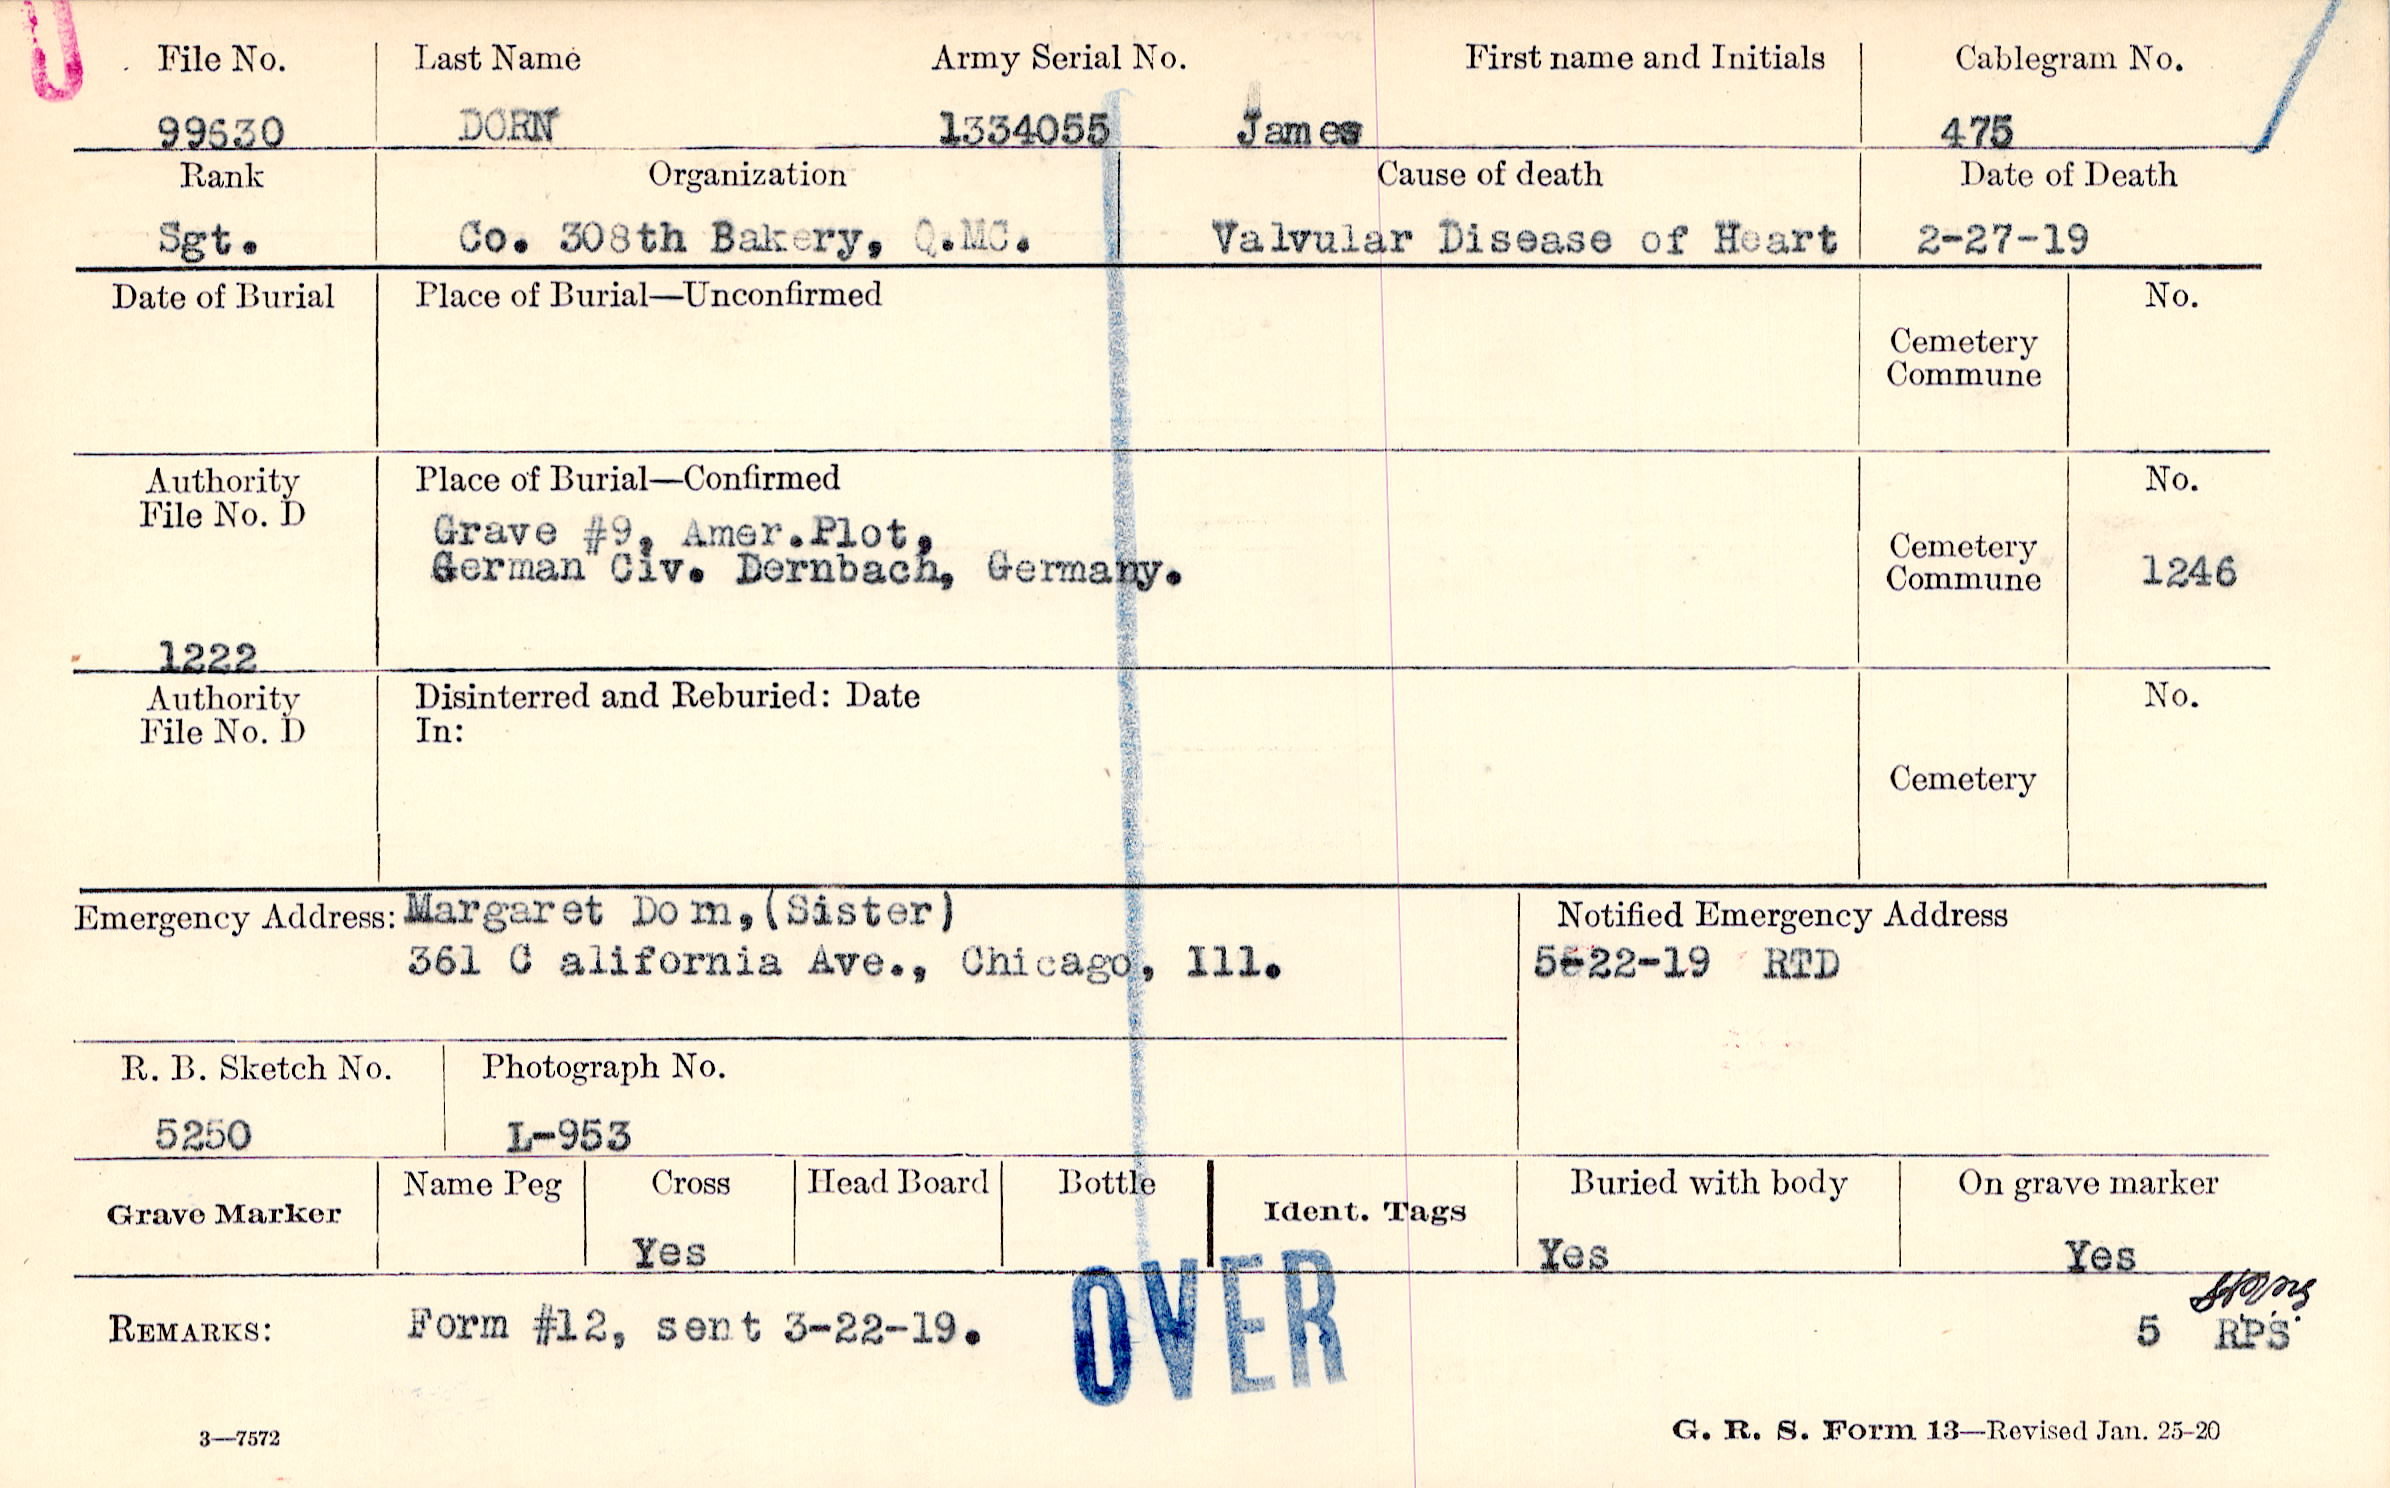 File No. Last Name Army Serial No. First name and Initials Cablegram No.
99630 DORN 1334055 James 475
Rank Organization Cause of death Date of Death
Sgt. Co. 308th Bakery, Q.MC. Valvular Disease of Heart 2-27-19
Date of Burial Place of Burial—Unconfirmed No.
Cemetery
Commune
Authority Place of Burial—Confirmed No.
File No. D
Grave #9, Amer.Plot,
German Civ. Dernbach, Germany.
Cemetery
Commune 1246
1222
Authority Disinterred and Reburied: Date No.
File No. D In:
Cemetery
Emergency Address: Margaret Dorn,(Sister) Notified Emergency Address
361 C alifornia Ave., Chicago, Ill. 5-22-19 RTD
R. B. Sketch No. Photograph No.
5250 L-953
Grave Marker Name Peg Cross Head Board Bottle Ident. Tags Buried with body On grave marker
Yes Yes Yes
REMARKS: Form #12, sent 3-22-19. 5 RPS
OVER
3—7572 G. R. S. Form 13—Revised Jan. 25-20